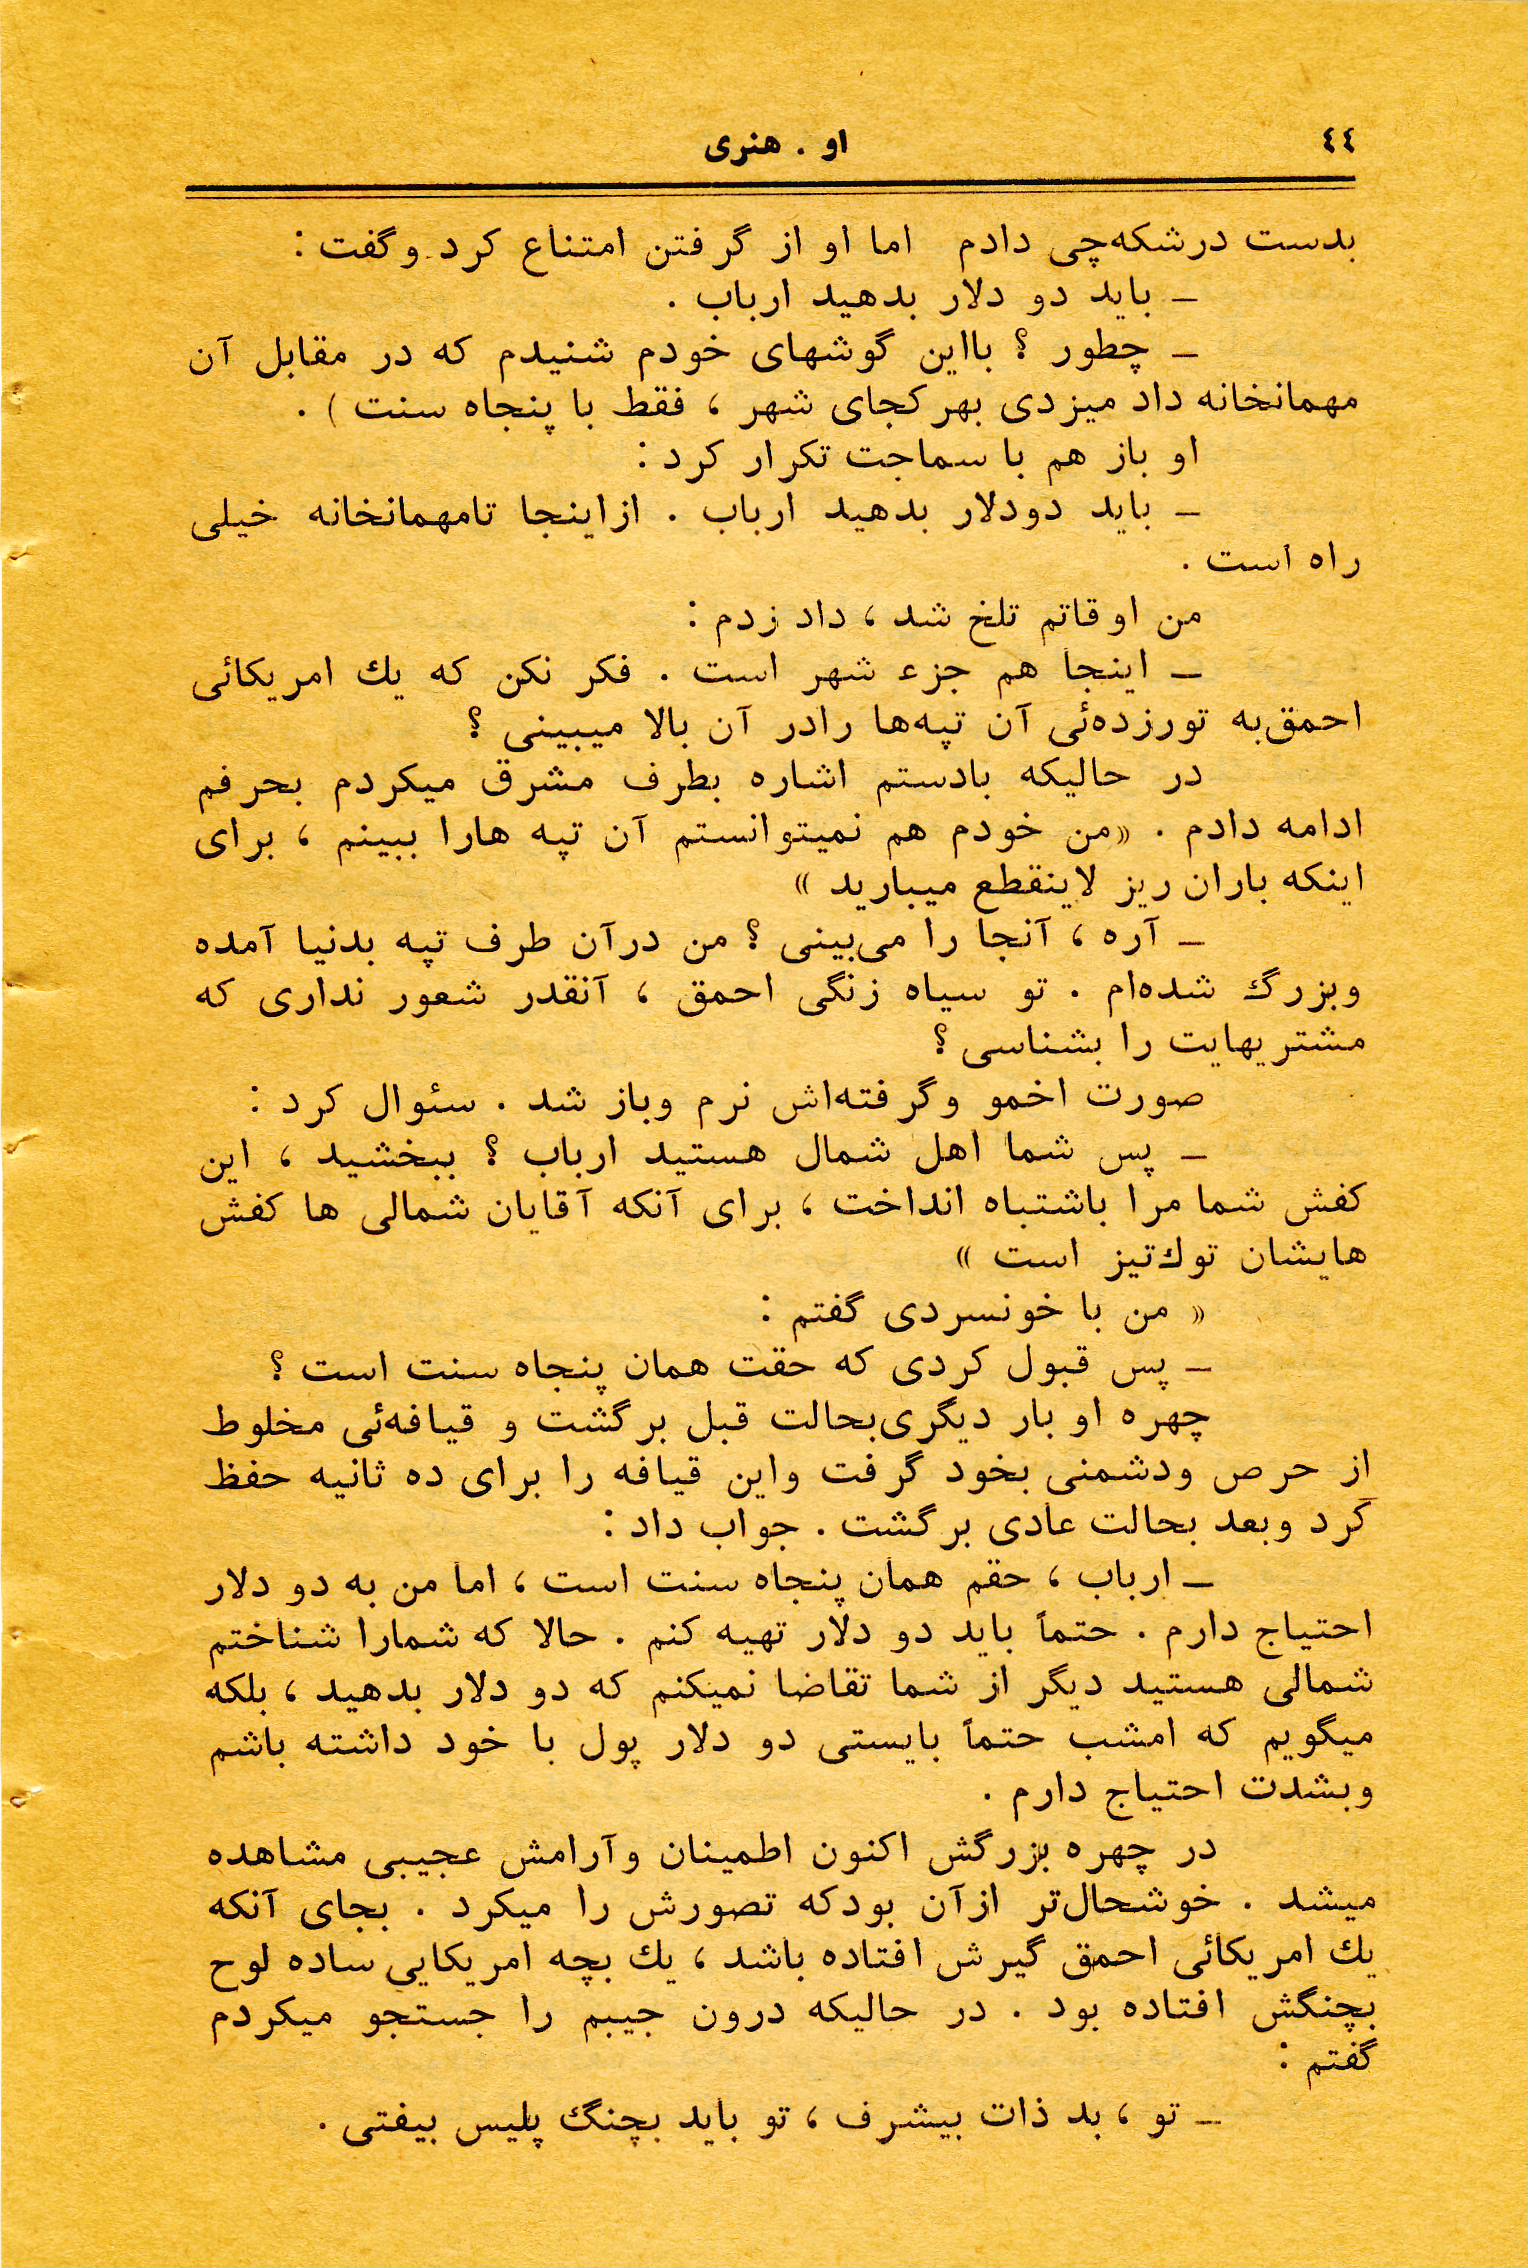 ٤٤
او . هنری
بدست درشکه‌چی دادم اما او از گرفتن امتناع کرد وگفت :
ــ باید دو دلار بدهید ارباب .
ــ چطور ؟ بااین گوشهای خودم شنیدم که در مقابل آن
مهمانخانه داد میزدی بهرکجای شهر ، فقط با پنجاه سنت ) .
او باز هم با سماجت تکرار کرد :
ــ باید دودلار بدهید ارباب . ازاینجا تامهمانخانه خیلی
راه است .
من اوقاتم تلخ شد ، داد زدم :
ــ اینجا هم جزء شهر است . فکر نکن که یك امریکائی
احمق‌به تورزده‌ئی آن تپه‌ها رادر آن بالا میبینی ؟
در حالیکه بادستم اشاره بطرف مشرق میکردم بحرفم
ادامه دادم . «من خودم هم نمیتوانستم آن تپه هارا ببینم ، برای
اینکه باران ریز لاینقطع میبارید »
ــ آره ، آنجا را می‌بینی ؟ من درآن طرف تپه بدنیا آمده
وبزرگ شده‌ام . تو سیاه زنگی احمق ، آنقدر شعور نداری که
مشتریهایت را بشناسی ؟
صورت اخمو وگرفته‌اش نرم وباز شد . سئوال کرد :
ــ پس شما اهل شمال هستید ارباب ؟ ببخشید ، این
کفش شما مرا باشتباه انداخت ، برای آنکه آقایان شمالی ها کفش
هایشان توك‌تیز است »
« من با خونسردی گفتم :
ــ پس قبول کردی که حقت همان پنجاه سنت است ؟
چهره او بار دیگری‌بحالت قبل برگشت و قیافه‌ئی مخلوط
از حرص ودشمنی بخود گرفت واین قیافه را برای ده ثانیه حفظ
کرد وبعد بحالت عادی برگشت . جواب داد :
ــ ارباب ، حقم همان پنجاه سنت است ، اما من به دو دلار
احتیاج دارم . حتماً باید دو دلار تهیه کنم . حالا که شمارا شناختم
شمالی هستید دیگر از شما تقاضا نمیکنم که دو دلار بدهید ، بلکه
میگویم که امشب حتماً بایستی دو دلار پول با خود داشته باشم
وبشدت احتیاج دارم .
در چهره بزرگش اکنون اطمینان وآرامش عجیبی مشاهده
میشد . خوشحال‌تر ازآن بودکه تصورش را میکرد . بجای آنکه
یك امریکائی احمق گیرش افتاده باشد ، یك بچه امریکایی ساده لوح
بچنگش افتاده بود . در حالیکه درون جیبم را جستجو میکردم
گفتم :
ــ تو ، بد ذات بیشرف ، تو باید بچنگ پلیس بیفتی .